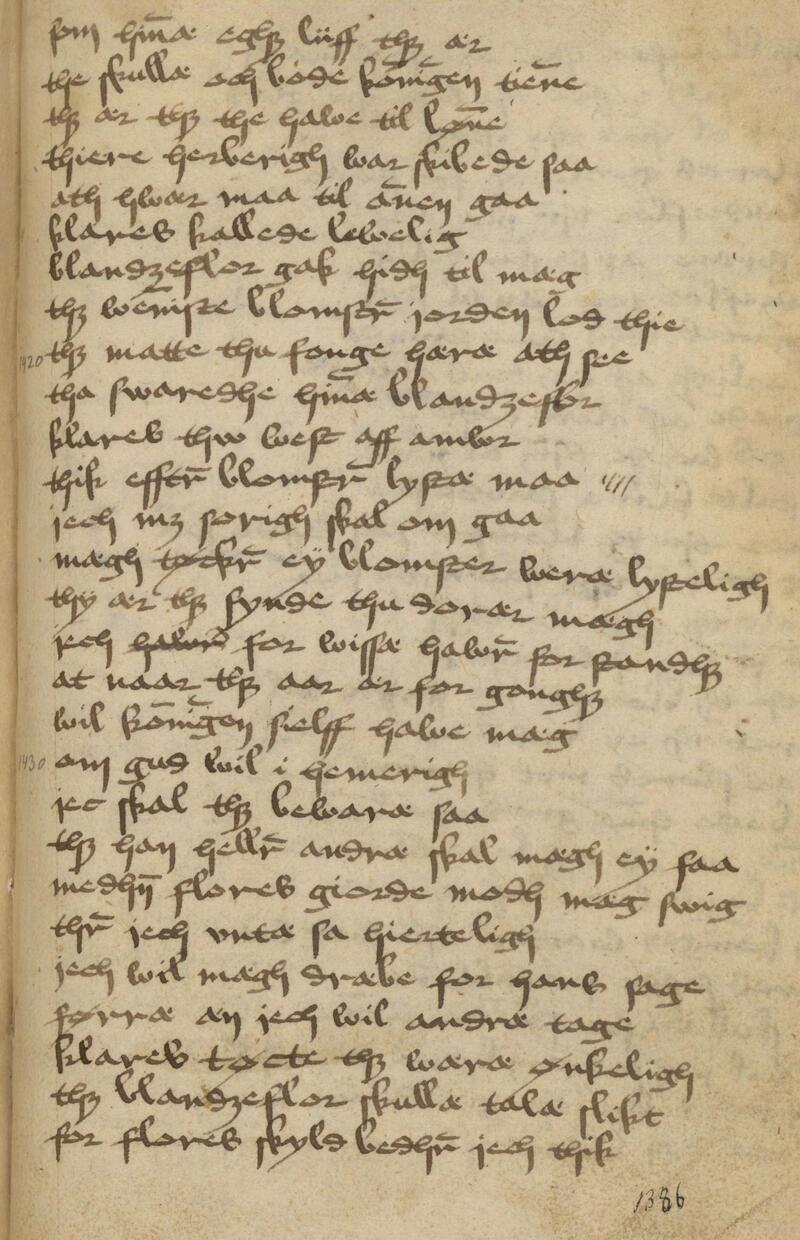 som hin̄æ eghꝫ liiff thꝫ ær
the skullæ och bode kōnīgen tien̄e
thꝫ ær thꝫ the hawe til løn̄e
thiere herberigh war skibede saa
ath hwær maa til an̄en gaa
klares kallede lewelig
blandzeflor gak hidh til mæg
thꝫ wen̄iste blomstr̄ jorden lod thie
1420 thꝫ matte thu fonge hæræ ath see
tha swaredhe hin̄æ blandzeflor
klares thw west aff amor
thik efftr̄ blomstr̄ lystæ maa
jech mꝫ sorigh skal om gaa
mægh tøckr̄ ey blomster weræ lysteligh
thy ær thꝫ synde thu dorær mægh
jech for wissæ hawr̄ for standhꝫ
at naar thꝫ aar ær for gonghꝫ
wil kōnīgen sielff hawe mæg
1430 om gud wil i hemerigh
jec skal thꝫ bewaræ saa
thꝫ han hellr̄ andræ skal mægh ey faa
medhn̄ flores giorde modh mæg swig
thr̄ jech vntæ sa hierteligh
jech wil mægh dræbe for hans sage
førræ æn jech wil andræ tage
klares tøcte thꝫ wæræ ønkeligh
thꝫ blandzeflor skullæ talæ slikt
for flores skyld bedhr̄ jech thik
1386